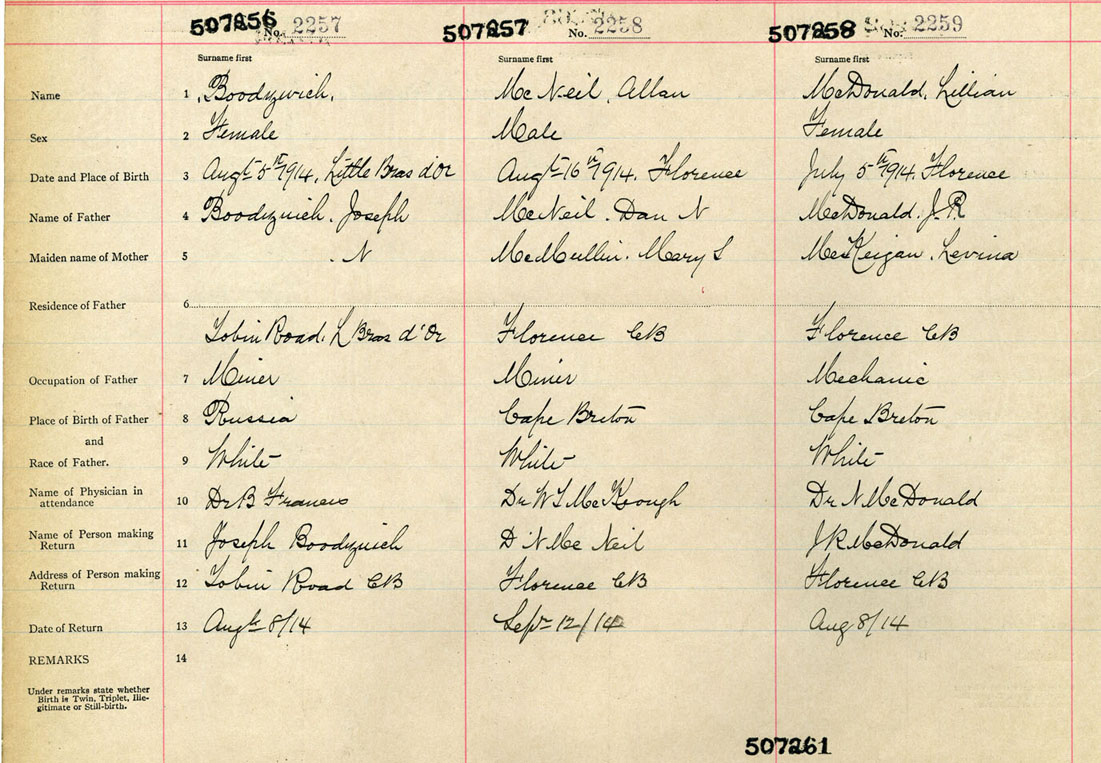 507256 No. 2257 507257 No. 2258 507258 No. 2259
Surname first Surname first Surname first
Name 1 Boodywich. McNeil. Allan McDonald. Lillian
Sex 2 Female Male Female
Date and Place of Birth 3 Augt 5th 1914. Little Bras d'Or Augt 16th 1914. Florence July 5th 1914. Florence
Name of Father 4 Joseph McNeil. Dan N McDonald. J.R
Maiden name of Mother 5 . N McMullin. Mary S Levina
Residence of Father 6
Tobin Road. L Bras d'Or Florence CB Florence CB
Occupation of Father 7 Miner Miner Mechanic
Place of Birth of Father 8 Russia Cape Breton Cape Breton
and
Race of Father. 9 White White White
Name of Physician in
attendance 10 Dr B Francis Dr W S McKeough Dr N McDonald
Name of Person making
Return 11 Joseph D N Mc Neil J R McDonald
Address of Person making
Return 12 Tobin Road CB Florence CB Florence CB
Date of Return 13 Augt 8/14 Sept 12/14 Aug 8/14
REMARKS 14
Under remarks state whether
Birth is Twin, Triplet, Ille-
gitimate or Still-birth.
507261